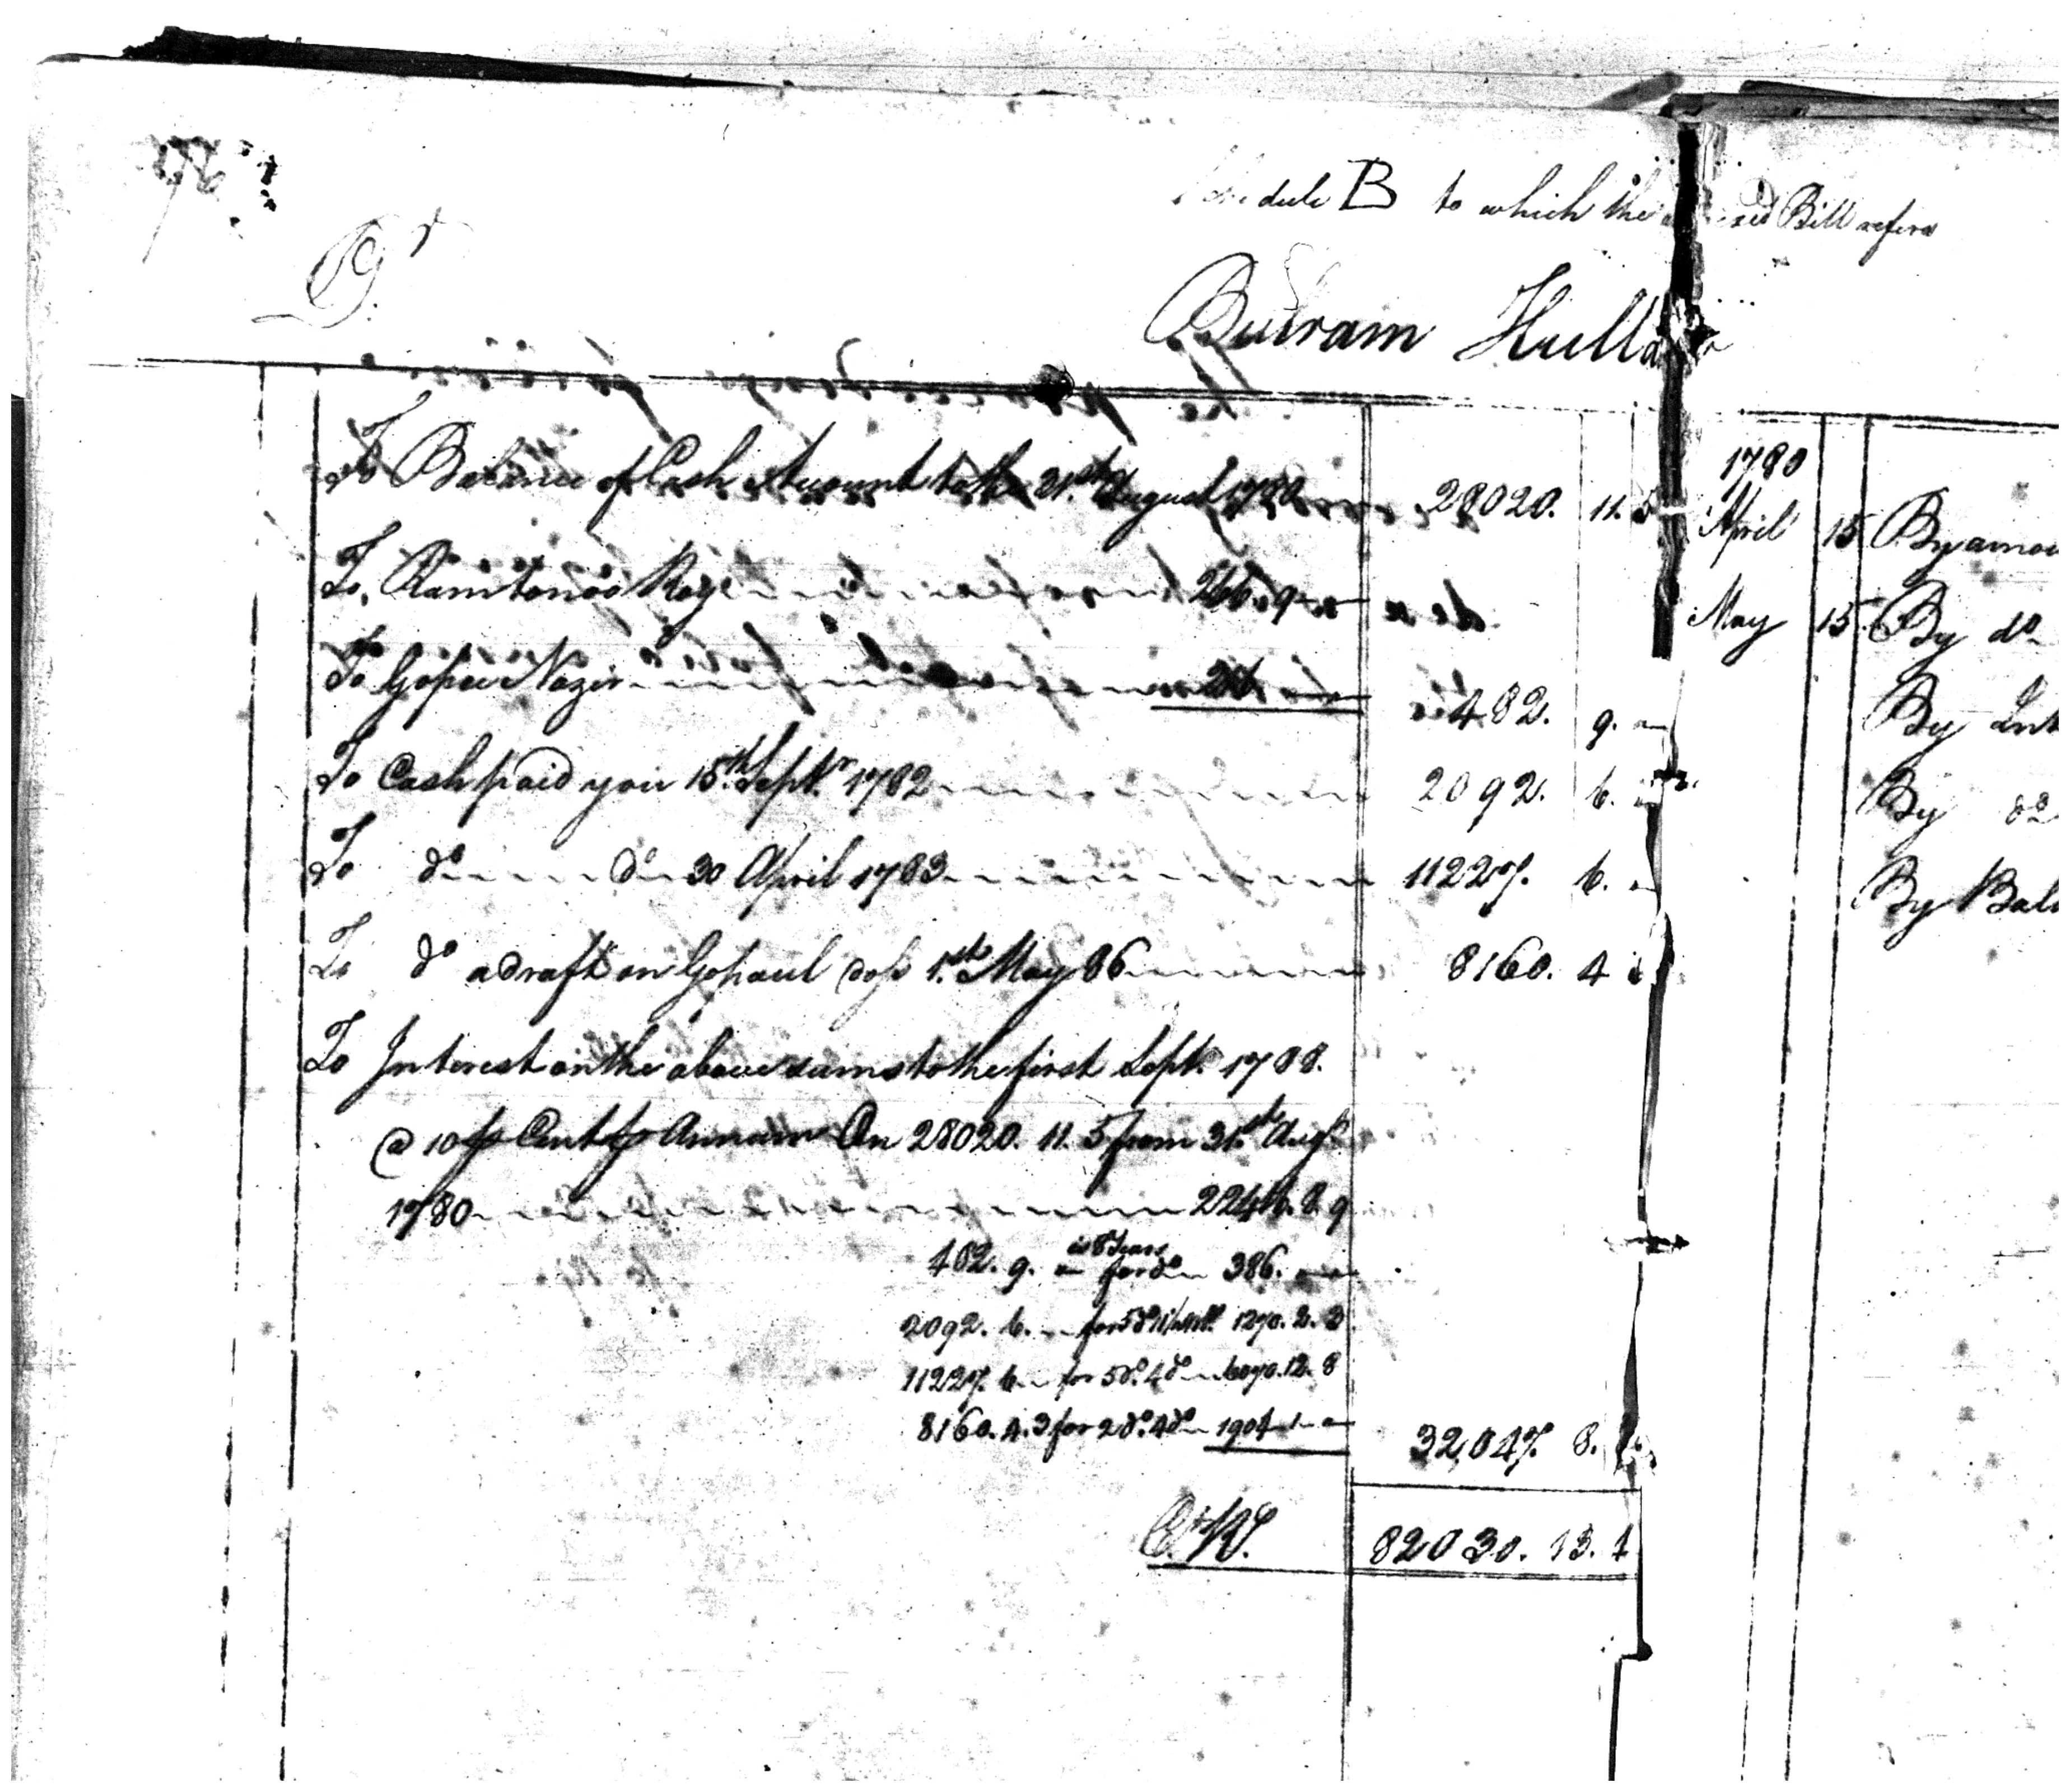 Dr
Schedule B to which the annexed Bill refers
Bulram Hulldar
To Balance of Cash Account to the 31st August 1780 28020. 11. 5
To Ramtonoo Roy 266. 9
To Gopee Nazir
482. 9.
To Cash paid you 15th Septr. 1782 2092. 6.
To do do 30 April 1783 11227. 6.
To do a draft on Gopaul doss 1st May 86 8160. 4
To Interest on the above sums to the first Sept. 1788.
@ 10 p Cent p Annum On 28020. 11. 5 from 31st Augt
1780 22416. 8. 9
is 8 Years
482. 9. for do 386.
2092. 6. for 5 do 11 1270. 2. 2
11227. 6 for 5 do. 4 do 6070. 12. 8
8160. 4. 3 for 2 do. 4 do 1904. 1
32,047. 8.
C. Rs. 82030. 13. 1
1780
April 15 By amou
May 15 By do
By Int
By do
By Bala